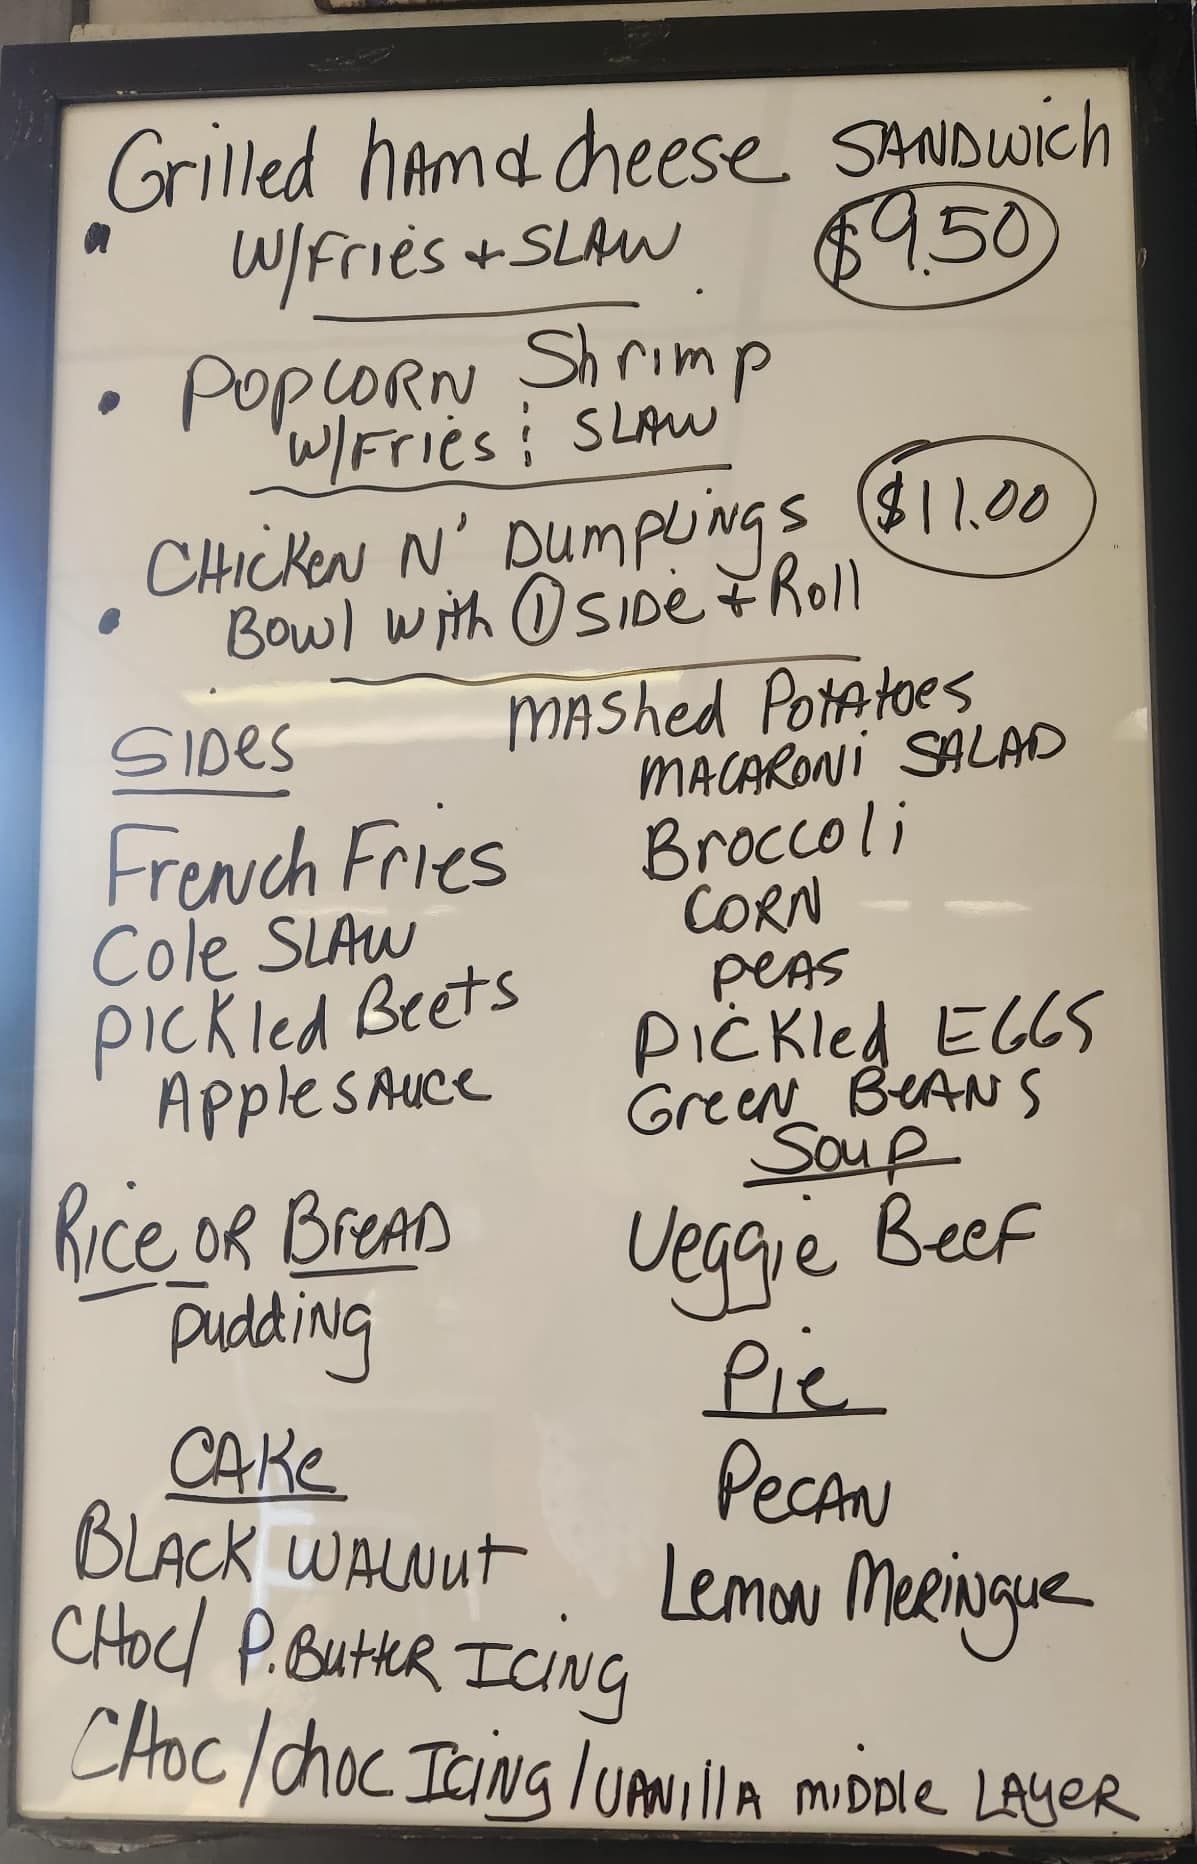 Grilled ham & cheese SANDwich
W/Fries + SLAW $9.50
• POPCORN Shrimp
W/Fries & SLAW
CHicken N' DumpLings $11.00
• Bowl with ① SIDe + Roll
SIDes
French Fries
Cole SLAW
PICKled Beets
Apple SAuce
MAShed PotAtoes
MACARONi SALAD
Broccoli
CORN
PeAS
PicKled EGGS
Green BeANS
Soup
Veggie Beef
Rice OR BreAD
Pudding
CAKe
BLACK WALNut
CHoc/ P. ButteR ICING
CHoc/choc ICiNg/VANillA MiDDle LAyeR
Pie
PecAN
Lemon MeRiNgue